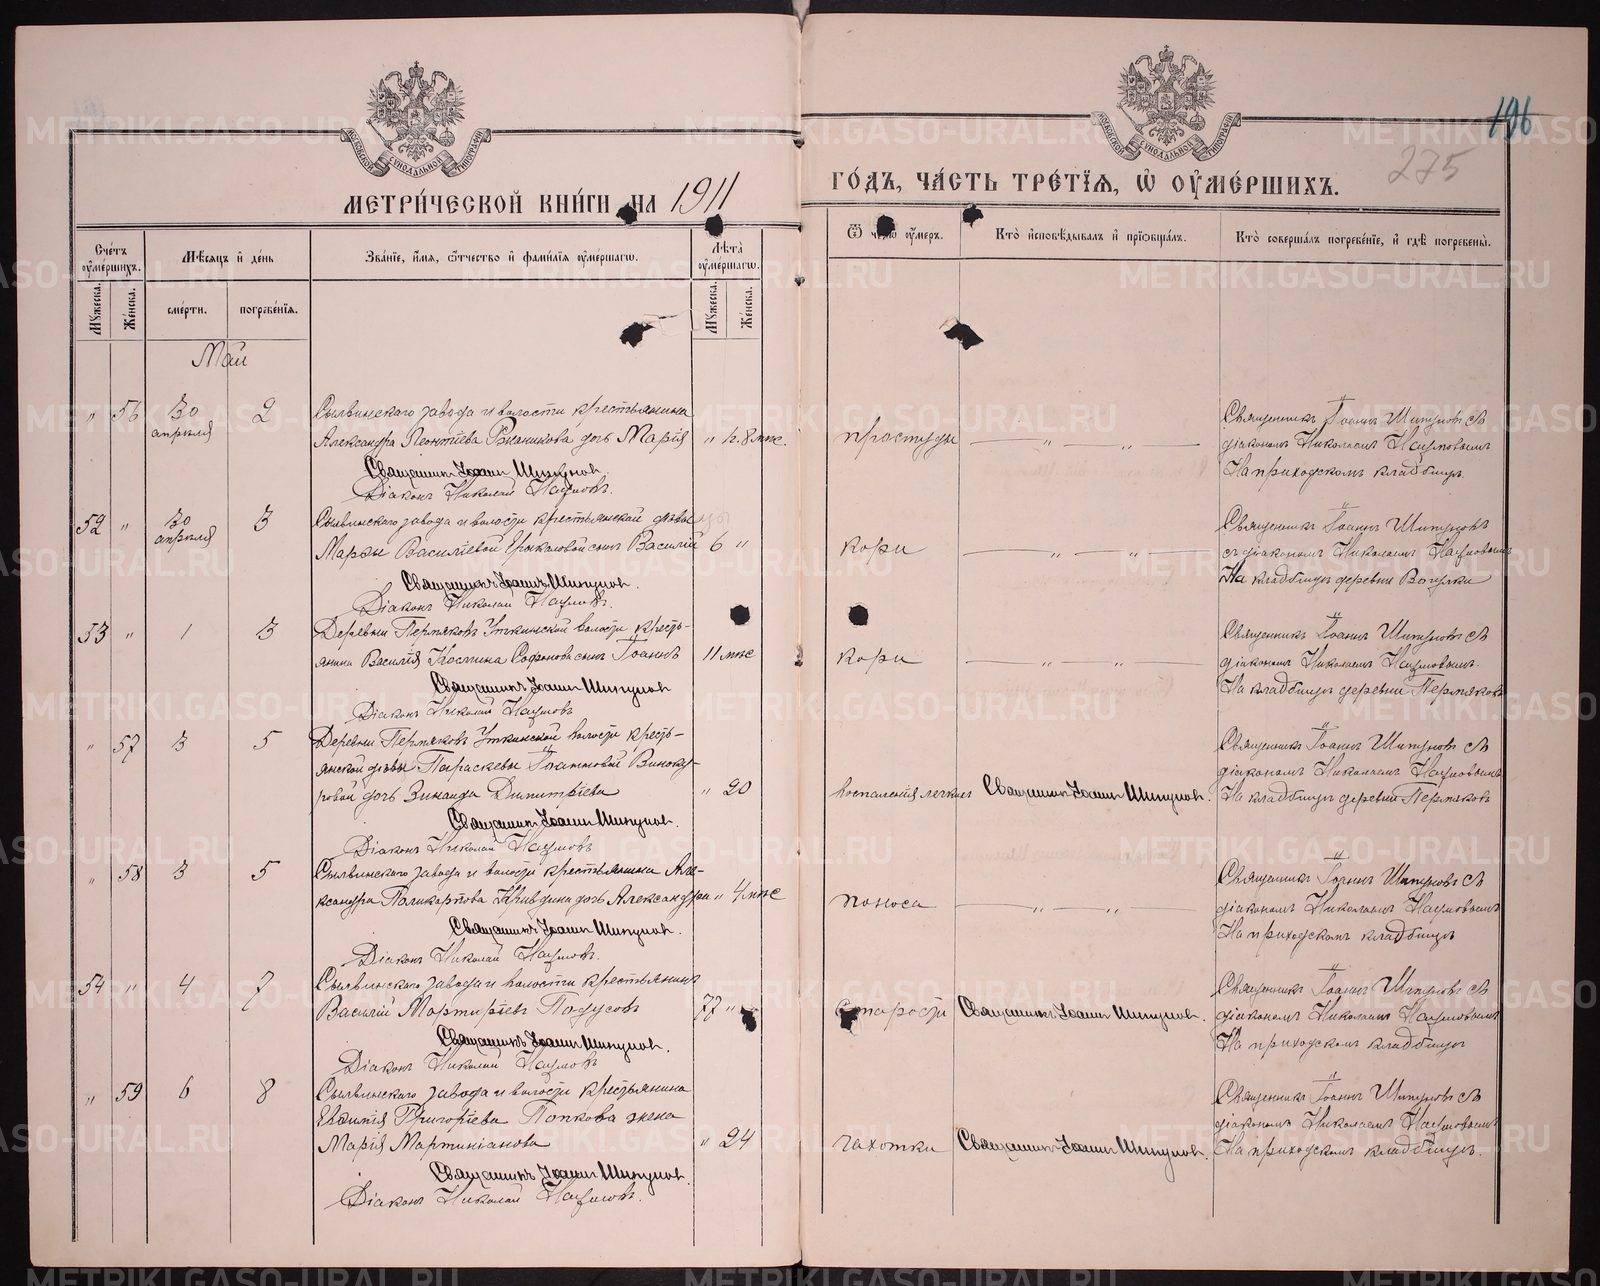 МЕТРИ́ЧЕСКОЙ КНИ́ГИ НА 1911 ГО́ДЪ, ЧА́СТЬ ТРЕ́ТІѦ, Ѿ ОУМЕ́РШИХЪ.
196
275
Сче́тъ оуме́ршихъ.
Мѣ́сѧцъ и де́нь
Зва́нїе, и́мѧ, ѻ҆́тчество и фами́лїѧ оуме́ршагѡ.
Лѣ́та оуме́ршагѡ.
Ѿ чегѡ̀ оу́меръ.
Кто̀ и҆сповѣ́дывалъ и прїѡбща́лъ.
Кто̀ соверша́лъ погребе́нїе, и гдѣ̀ погребены̀.
Мꙋ́жеска.
Же́нска.
сме́рти.
погребе́нїѧ.
Мꙋ́жеска.
Же́нска.
Май
" 56 30 апрѣля 2
Сылвинскаго завода и волости крестьянина
Александра Леонтіева дочь Марія " 1 г. 8 мѣс.
Священникъ Іоаннъ Шипуновъ.
Діаконъ Николай Наумовъ.
простуды
Священникъ Іоаннъ Шипуновъ съ
діакономъ Николаемъ Наумовымъ
На приходскомъ кладбищѣ.
52 " 30 апрѣля 3
Сылвинскаго завода и волости крестьянской дѣвы
Марѳы Васильевой сынъ Василій 6 "
Священникъ Іоаннъ Шипуновъ.
Діаконъ Николай Наумовъ.
кори
Священникъ Іоаннъ Шипуновъ
съ діакономъ Николаемъ Наумовымъ
На кладбищѣ деревни
53 " 1 3
Деревни Пермяковъ Уткинской волости кресть-
янина Василія Космина Софонова сынъ Іоаннъ 11 мѣс
Священникъ Іоаннъ Шипуновъ
Діаконъ Николай Наумовъ
кори
Священникъ Іоаннъ Шипуновъ съ
діакономъ Николаемъ Наумовымъ.
На кладбищѣ деревни Пермяковъ
" 57 3 5
Деревни Пермяковъ Уткинской волости кресть-
янской дѣвы Параскевы Іоанновой Виноку-
ровой дочь Зинаида Димитріева " 20
Священникъ Іоаннъ Шипуновъ.
Діаконъ Николай Наумовъ
воспаленія легкихъ
Священникъ Іоаннъ Шипуновъ.
Священникъ Іоаннъ Шипуновъ съ
діакономъ Николаемъ Наумовымъ
На кладбищѣ деревни Пермяковъ
" 58 3 5
Сылвинскаго завода и волости крестьянина Але-
ксандра Поликарпова Кривдина дочь Александра " 4 мѣс
Священникъ Іоаннъ Шипуновъ.
Діаконъ Николай Наумовъ.
поноса
Священникъ Іоаннъ Шипуновъ съ
діакономъ Николаемъ Наумовымъ
На приходскомъ кладбищѣ
54 " 4 7
Сылвинскаго завода и волости крестьянинъ
Василій Мартиріевъ Подусовъ 77 "
Священникъ Іоаннъ Шипуновъ.
Діаконъ Николай Наумовъ
старости
Священникъ Іоаннъ Шипуновъ.
Священникъ Іоаннъ Шипуновъ съ
діакономъ Николаемъ Наумовымъ
На приходскомъ кладбищѣ
" 59 6 8
Сылвинскаго завода и волости крестьянина
Евѳимія Григоріева Попкова жена
Марія Мартиніанова " 24
Священникъ Іоаннъ Шипуновъ.
Діаконъ Николай Наумовъ.
чахотки
Священникъ Іоаннъ Шипуновъ.
Священникъ Іоаннъ Шипуновъ съ
діакономъ Николаемъ Наумовымъ
На приходскомъ кладбищѣ.
METRIKI.GASO-URAL.RU